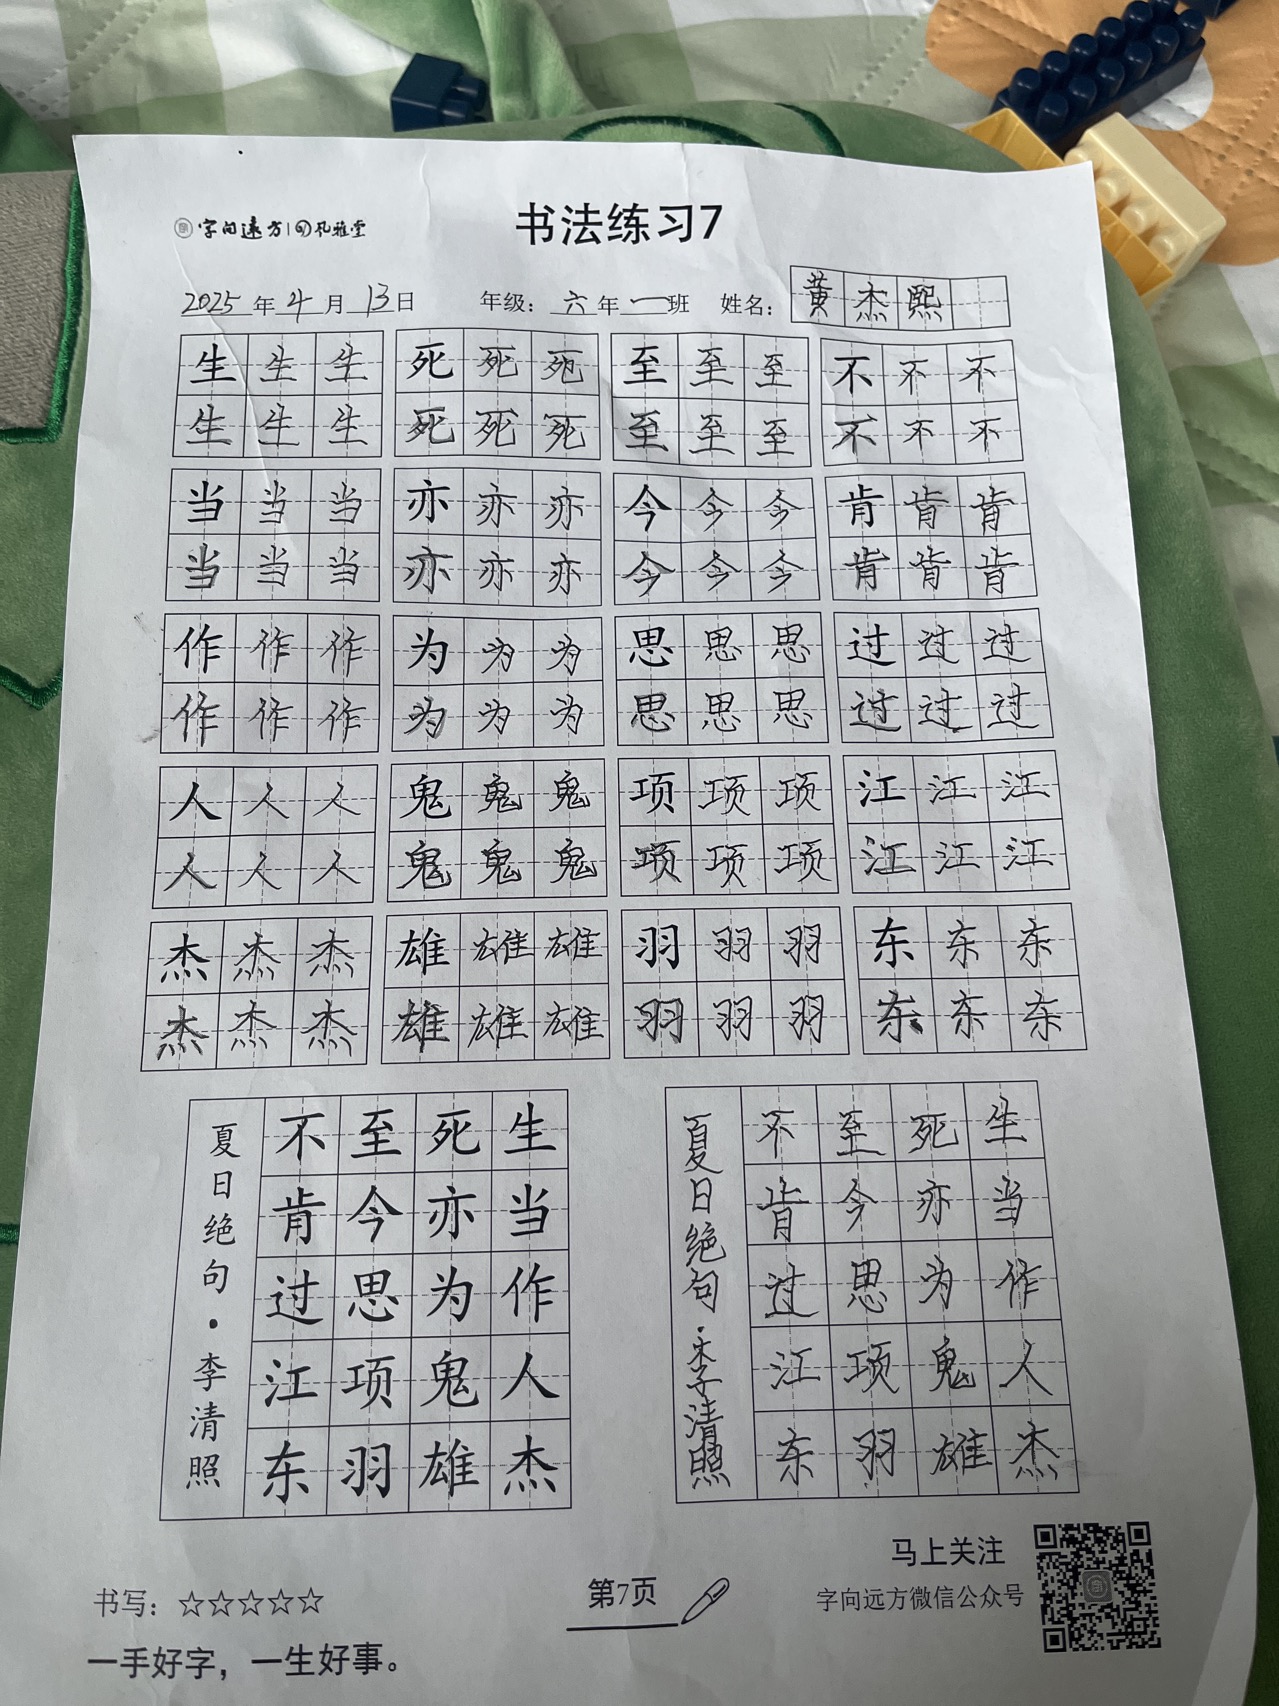 字向远方 孔雅堂
书法练习7
2025年4月13日 年级：六年一班 姓名：黄杰熙
生生生 死死死 至至至 不不不
生生生 死死死 至至至 不不不
当当当 亦亦亦 今今今 肯肯肯
当当当 亦亦亦 今今今 肯肯肯
作作作 为为为 思思思 过过过
作作作 为为为 思思思 过过过
人人人 鬼鬼鬼 项项项 江江江
人人人 鬼鬼鬼 项项项 江江江
杰杰杰 雄雄雄 羽羽羽 东东东
杰杰杰 雄雄雄 羽羽羽 东东东
生当作人杰
死亦为鬼雄
至今思项羽
不肯过江东
夏日绝句·李清照
生当作人杰
死亦为鬼雄
至今思项羽
不肯过江东
夏日绝句·李清照
马上关注
字向远方微信公众号
书写：☆☆☆☆☆
第7页
一手好字，一生好事。